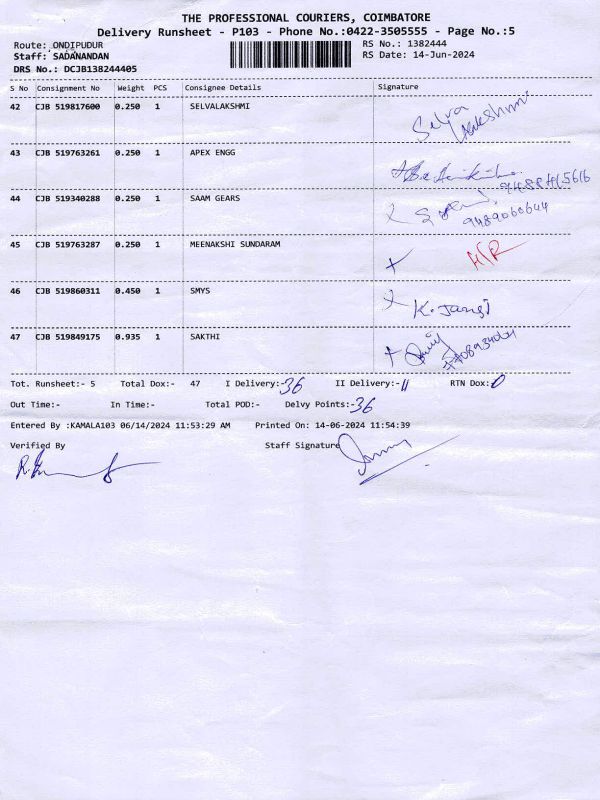 THE PROFESSIONAL COURIERS, COIMBATORE
Delivery Runsheet - P103 - Phone No.:0422-3505555 - Page No.:5
Route: ONDIPUDUR RS No.: 1382444
Staff: SADANANDAN RS Date: 14-Jun-2024
DRS No.: DCJB138244405
S No Consignment No Weight PCS Consignee Details Signature
42 CJB 519817600 0.250 1 SELVALAKSHMI Selva
Lakshmi
43 CJB 519763261 0.250 1 APEX ENGG
44 CJB 519340288 0.250 1 SAAM GEARS
9489060644
45 CJB 519763287 0.250 1 MEENAKSHI SUNDARAM
46 CJB 519860311 0.450 1 SMYS K. Jangi
47 CJB 519849175 0.935 1 SAKTHI
Tot. Runsheet:- 5 Total Dox:- 47 I Delivery:-36 II Delivery:-11 RTN Dox:0
Out Time:- In Time:- Total POD:- Delvy Points:-36
Entered By :KAMALA103 06/14/2024 11:53:29 AM Printed On: 14-06-2024 11:54:39
Verified By Staff Signature